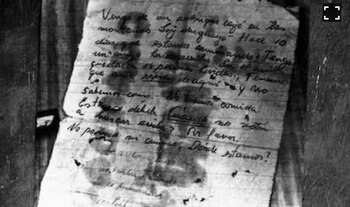 Vengo de un avión que cayó en las
montañas. Soy uruguayo. Hace 10
días que estamos caminando. Tengo
un amigo herido arriba. En el avión
quedaron 14 personas heridas. Tenemos
que salir rápido de aquí y no
sabemos como. No tenemos comida.
Estamos débiles. Cuándo nos van
a buscar arriba? Por favor.
No podemos ni caminar. Donde estamos?